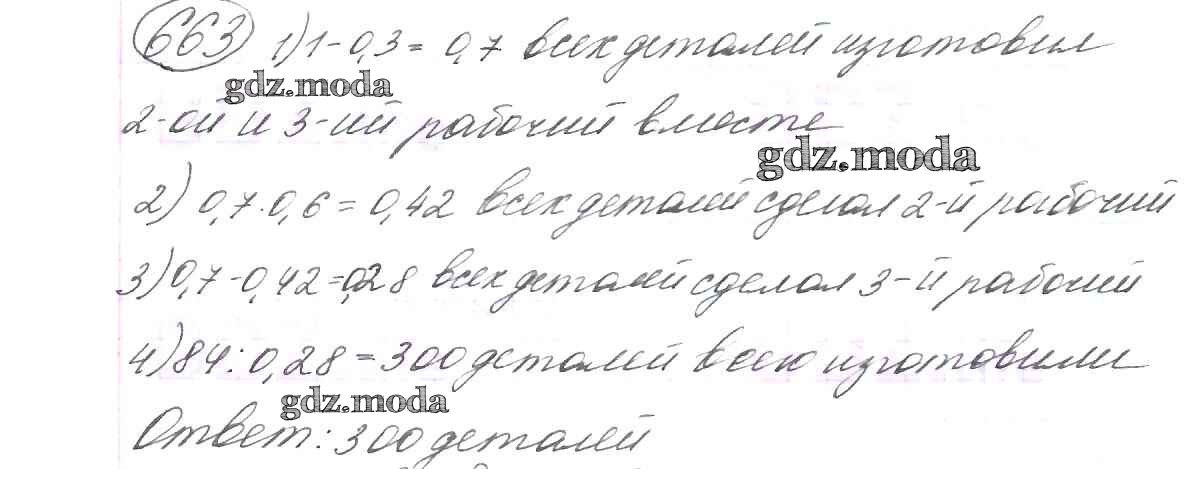 663 1) 1-0,3 = 0,7 всех деталей изготовил
gdz.moda
2-ой и 3-ий рабочий вместе
gdz.moda
2) 0,7·0,6 = 0,42 всех деталей сделал 2-й рабочий
3) 0,7-0,42=0,28 всех деталей сделал 3-й рабочий
4) 84:0,28 = 300 деталей всего изготовили
gdz.moda
Ответ: 300 деталей